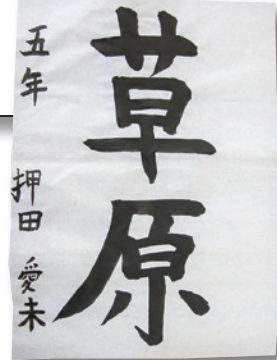 草原
五年 押田 愛未